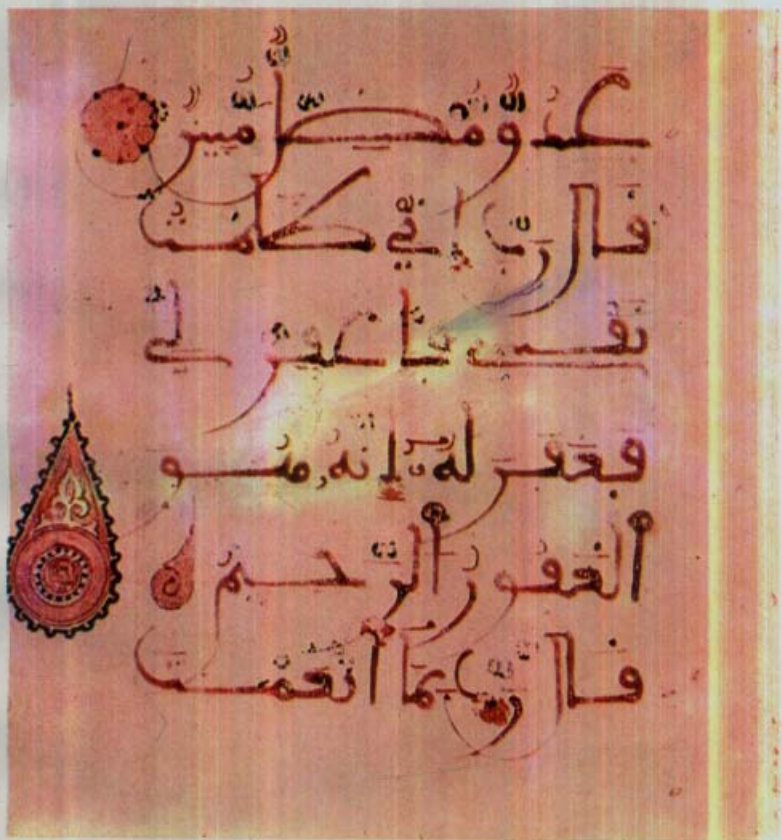 عَدُوٌّ مُّضِلٌّ مُّبِينٌ
قَالَ رَبِّ إِنِّي ظَلَمْتُ
نَفْسِي فَاغْفِرْ لِي
فَغَفَرَ لَهُ إِنَّهُ هُوَ
الْغَفُورُ الرَّحِيمُ
قَالَ رَبِّ بِمَا أَنْعَمْتَ